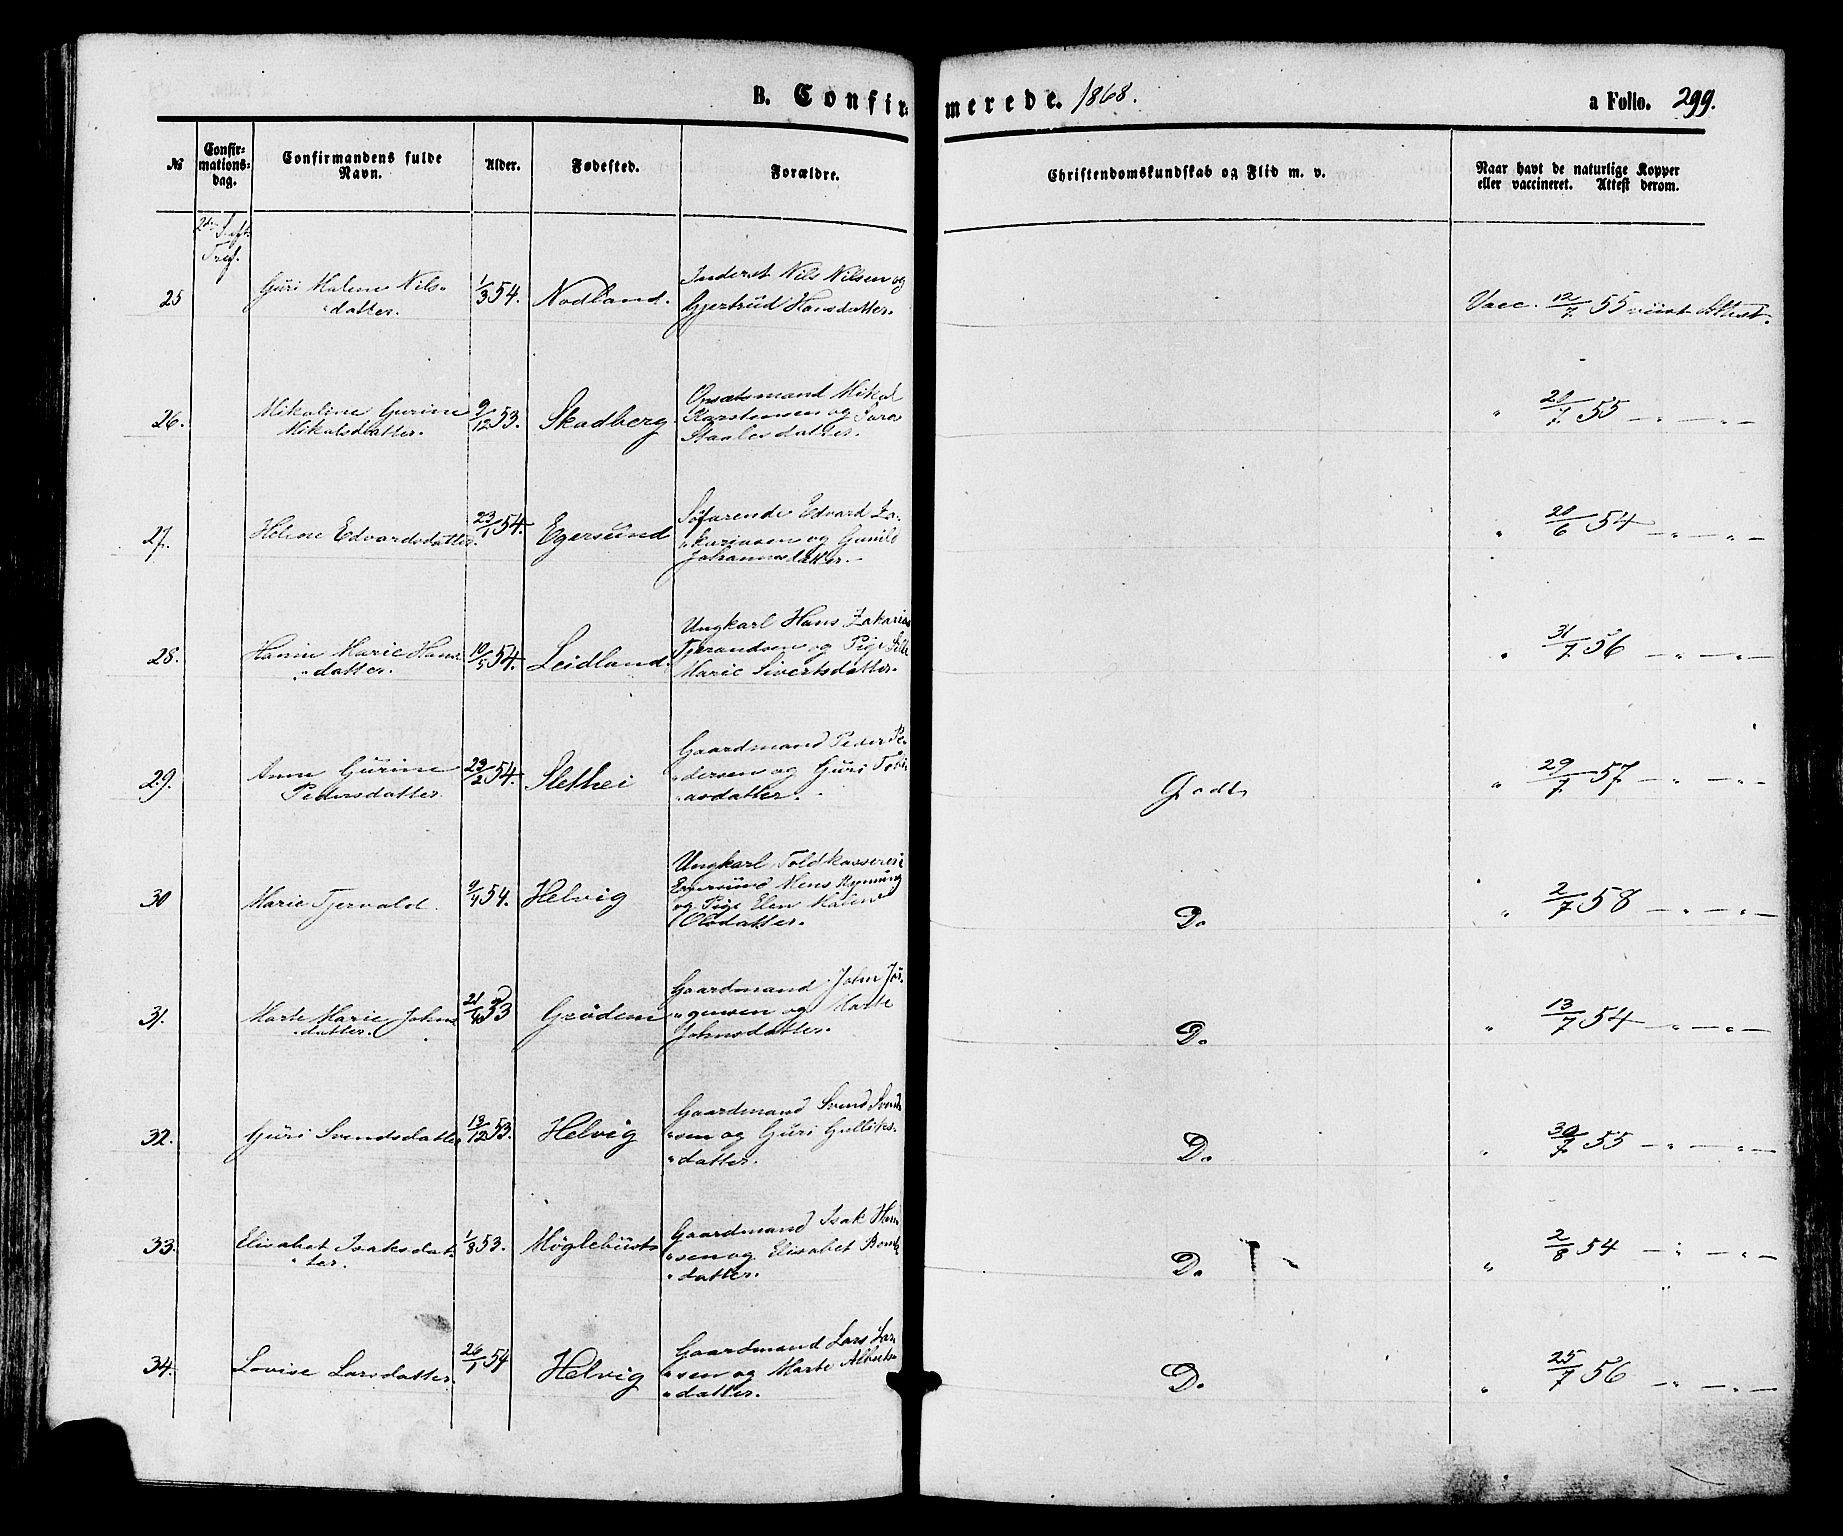 B. Confirmerede. 1868.
a Folio. 299.
№
Confirmationsdag.
Confirmandens fulde Navn.
Alder.
Fødested.
Forældre.
Christendomskundskab og Flid m. v.
Naar havt de naturlige Kopper
eller vaccineret. Attest derom.
25
Guri Malene Nils-
"datter.
1/3 54.
Nodland.
Inderst Nils Nilsen og
Gjertrud Hansdatter.
Vacc. 12/7 55 viist Attest.
26.
Mikaline Gurine
Mikalsdatter.
9/12 53.
Skadberg
Opsætsmand Mikal
Karstensen og Sara
Staalesdatter.
" 20/7 55 — " — " —
27.
Helene Edvardsdatter.
23/1 54.
Egersund
Søfarende Edvard Za-
"kariasen og Gunild
Johannesdatter.
" 20/6 54 — " — " —
28.
Marie Hans
"datter.
10/5 54.
Leidland.
Ungkarl Hans Zakarias
Tjerandsen og Pige
Marie Sivertsdatter.
" 31/7 56 — " — " —
29.
Anne Gurine
Pedersdatter
23/2 54.
Slethei
Gaardmand Peder Pe-
"dersen og Guri
"asdatter.
Godt
" 29/7 57 — " — " —
30
Marie Tjervald.
9/4 54.
Helvig
Ungkarl
Egersund Mons
og Pige Elen Malene
Olsdatter.
Do
" 2/7 58 — " — " —
31.
Marte Marie Johns
"datter.
53
Grødem
Gaardmand John Jør-
"gensen og Marte
Johnsdatter.
Do
" 13/7 54 — " — " —
32.
Guri Svendsdatter
13/12 53.
Helvig
Gaardmand Svend Svend-
"sen og Guri Gulliks-
"datter.
Do
" 30/7 55 — " — " —
33.
Elisabet Isaksdat-
"ter.
1/8 53.
Møglebust
Gaardmand Isak Han
"sen og Elisabet
"datter.
Do
" 2/8 54 — " — " —
34.
Lovise Larsdatter.
26/1 54
Helvig
Gaardmand Lars Lar
"sen og Marte Alberts-
"datter.
Do
" 25/7 56 — " — " —